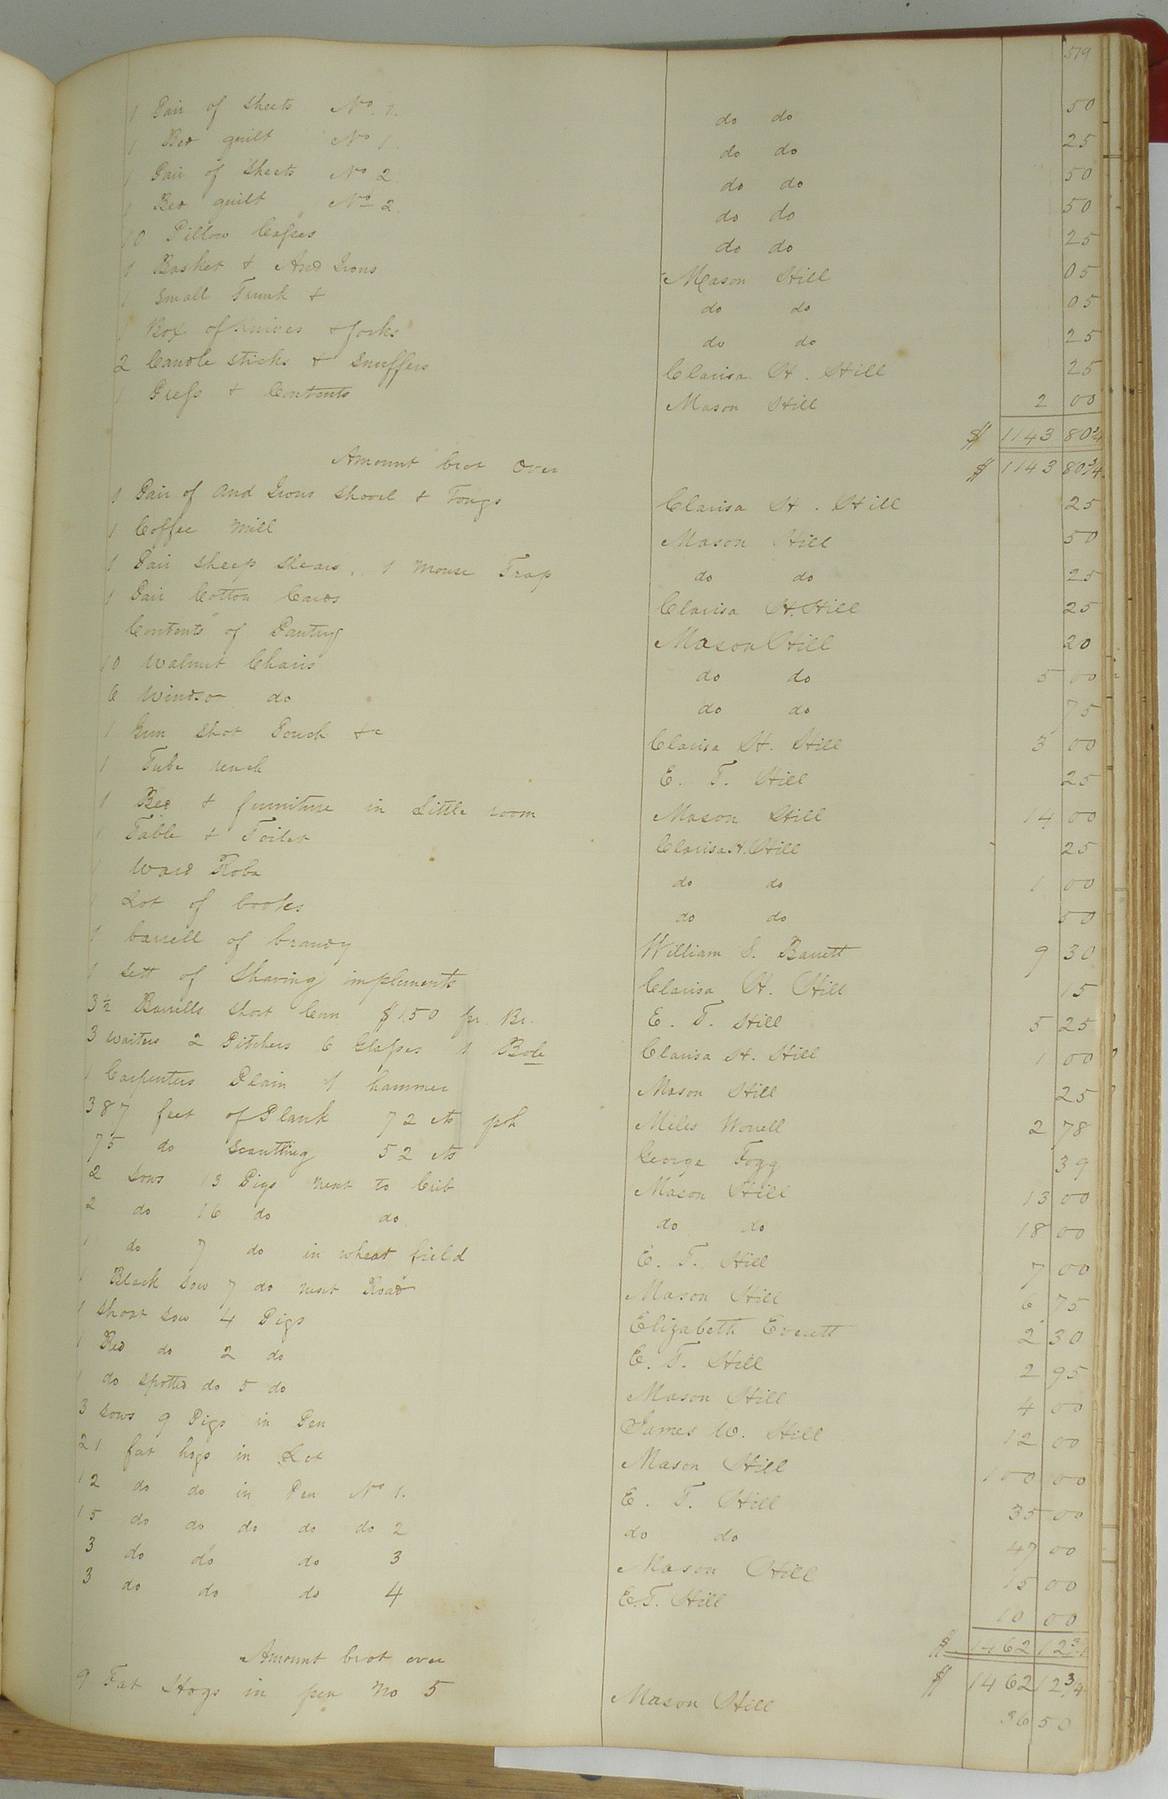 519
1 Pair of Sheets No 1. do do 50
1 Bed quilt No 1. do do 25
1 Pair of Sheets No 2 do do 50
1 Bed quilt No 2. do do 50
10 Pillow Cases do do 25
1 Basket & And Irons Mason Hill 05
1 Small Trunk & do do 05
1 Box of Knives & forks do do 25
2 Candle Sticks & Snuffers Clarisa H. Hill 25
1 Press & Contents Mason Hill 2 00
$ 1143 80 3/4
Amount brot over $ 1143 80 3/4
1 Pair of And Irons Shovel & Tongs Clarisa H. Hill 25
1 Coffee Mill Mason Hill 50
1 Pair Sheep Shears. 1 Mouse Trap do do 25
1 Pair Cotton Cards Clarisa H. Hill 25
Contents of Pantry Mason Hill 20
10 Walnut Chairs do do 5 00
6 Windsor do do do 75
1 Gun Shot Pouch &c Clarisa H. Hill 3 00
1 Tube E. T. Hill 25
1 Bed & furniture in Little room Mason Hill 14 00
1 Table & Toilet Clarisa H. Hill 25
1 Ward Robe do do 1 00
1 Lot of books do do 50
1 barrell of brandy William S. Barrett 9 30
1 Sett of Shaving implements Clarisa H. Hill 15
3½ Barrells Short Corn $1.50 pr. Br. E. T. Hill 5 25
3 waiters 2 Pitchers 6 Glasses 1 Bole Clarisa H. Hill 1 00
1 Carpenters Plain 1 hammer Mason Hill 25
387 feet of Plank 72 cts ph Miles Worrell 2 78
75 do Scantling 52 cts George Fogg 39
2 Sows 13 Pigs next to Crib Mason Hill 13 00
2 do 16 do do do do 18 00
1 do 7 do in wheat field E. T. Hill 7 00
1 Black Sow 7 do next Road Mason Hill 6 75
1 Short Sow 4 Pigs Elizabeth Everett 2 30
1 Red do 2 do E. T. Hill 2 95
1 do Spotted do 5 do Mason Hill 4 00
3 Sows 9 Pigs in Pen James W. Hill 12 00
21 fat hogs in Lot Mason Hill 100 00
12 do do in Pen No 1. E. T. Hill 35 00
15 do do do do do 2 do do 47 00
3 do do do 3 Mason Hill 15 00
3 do do do 4 E. T. Hill 10 00
$ 1462 12 3/4
Amount brot over $ 1462 12 3/4
9 Fat Hogs in pen No 5 Mason Hill 36 50